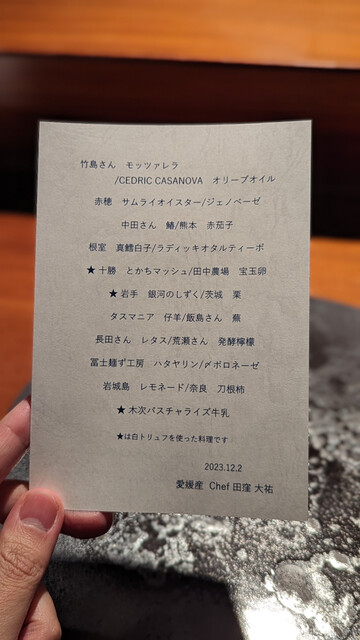 竹島さん モッツァレラ
/CEDRIC CASANOVA オリーブオイル
赤穂 サムライオイスター/ジェノベーゼ
中田さん 鰆/熊本 赤茄子
根室 真鱈白子/ラディッキオタルティーボ
★十勝 とかちマッシュ/田中農場 宝玉卵
★岩手 銀河のしずく/茨城 栗
タスマニア 仔羊/飯島さん 蕪
長田さん レタス/荒瀬さん 発酵檸檬
冨士麺ず工房 ハタヤリン/〆ボロネーゼ
岩城島 レモネード/奈良 刀根柿
★木次パスチャライズ牛乳
★は白トリュフを使った料理です
2023.12.2
愛媛産 Chef 田窪 大祐